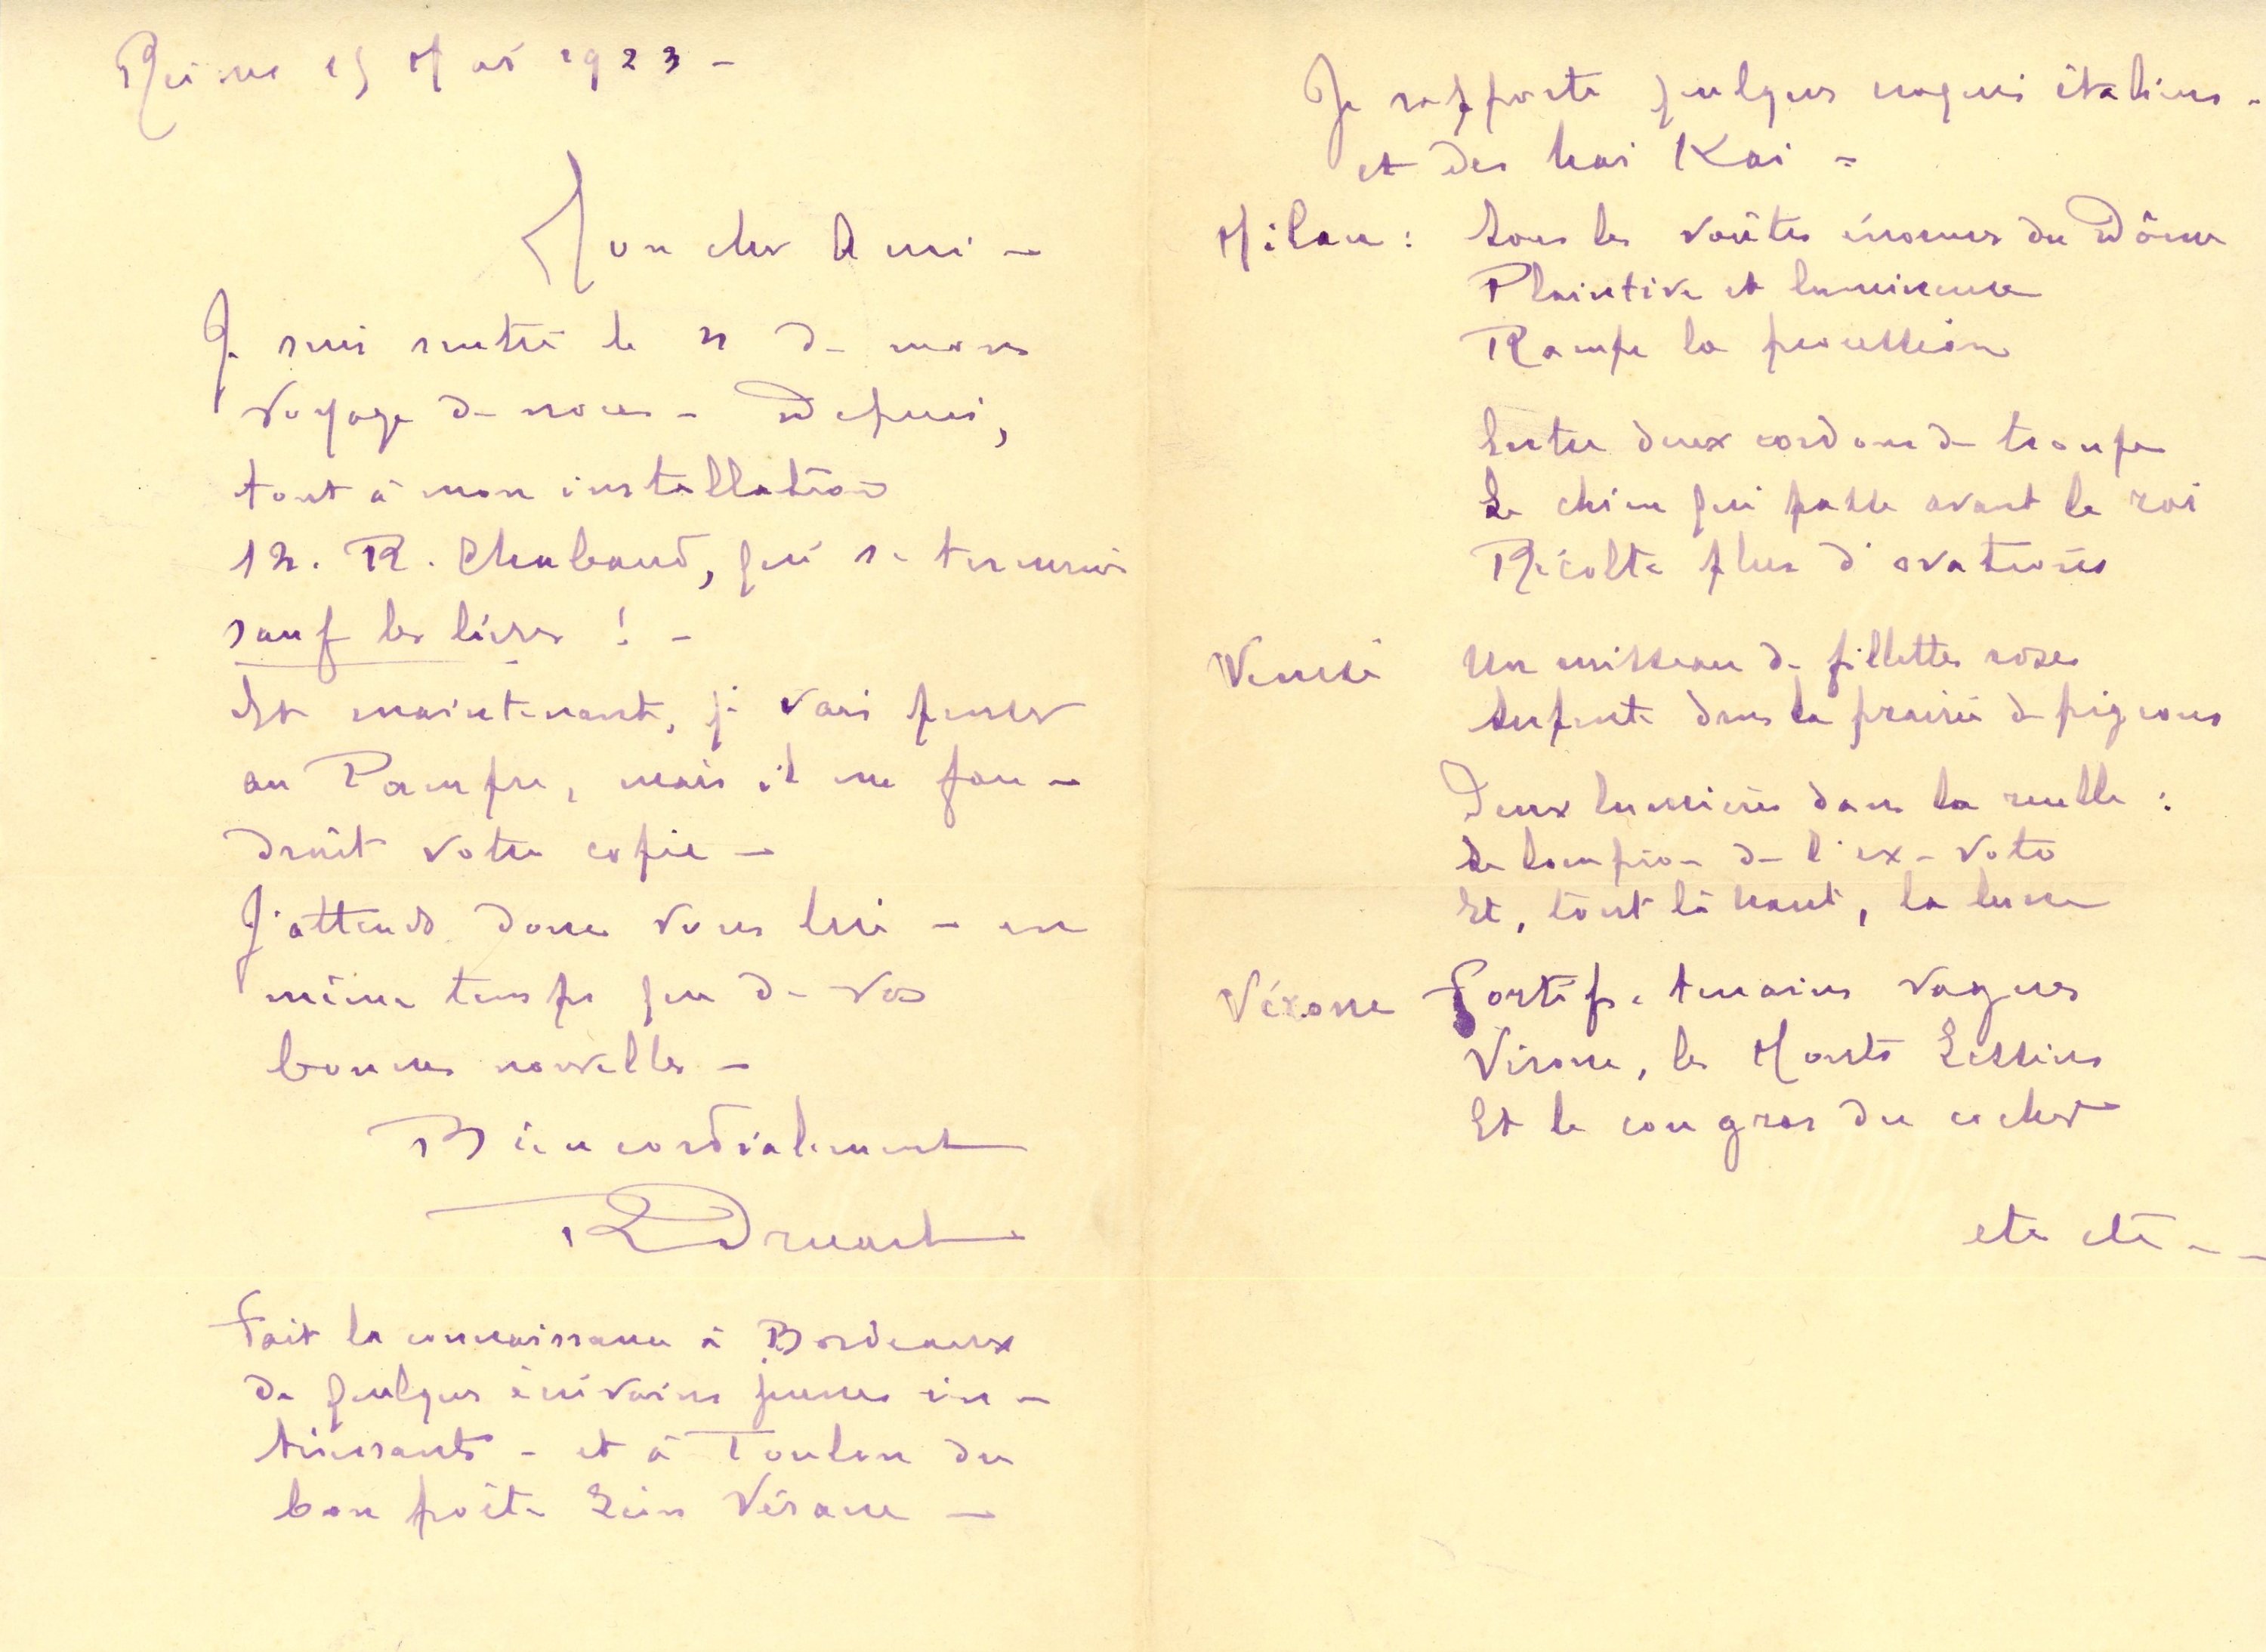 Reims 15 Mai 1923 -
Mon cher Ami -
Je suis rentré le de mon
voyage de noces - Depuis,
tout à mon installation
12. R. Chabaud, qui se termine
sauf les livres ! -
Et maintenant, je vais penser
au Pampre, mais il me fau -
drait votre copie -
J'attends donc vous lire - en
même temps que de vos
bonnes nouvelles -
Bien cordialement
R Druart
Fait la connaissance à Bordeaux
de quelques écrivains jeunes in -
téressants - et à Toulon du
bon poète Léon Vérane -
Je rapporte quelques croquis italiens -
et des hai Kai -
Milan : Sous les voûtes énormes du Dôme
Plaintive et lumineuse
Rampe la procession
Entre deux cordons de troupe
Le chien qui passe avant le roi
Récolte plus d'ovations
Venise Un ruisseau de fillettes roses
Serpente dans la prairie de pigeons
Deux lumières dans la ruelle :
Le lampion de l'ex-voto
Et, tout là haut, la lune
Vérone Fortifs, terrains vagues
Vérone, les Monts Lessins
Et le cou gras du cocher
etc etc - -